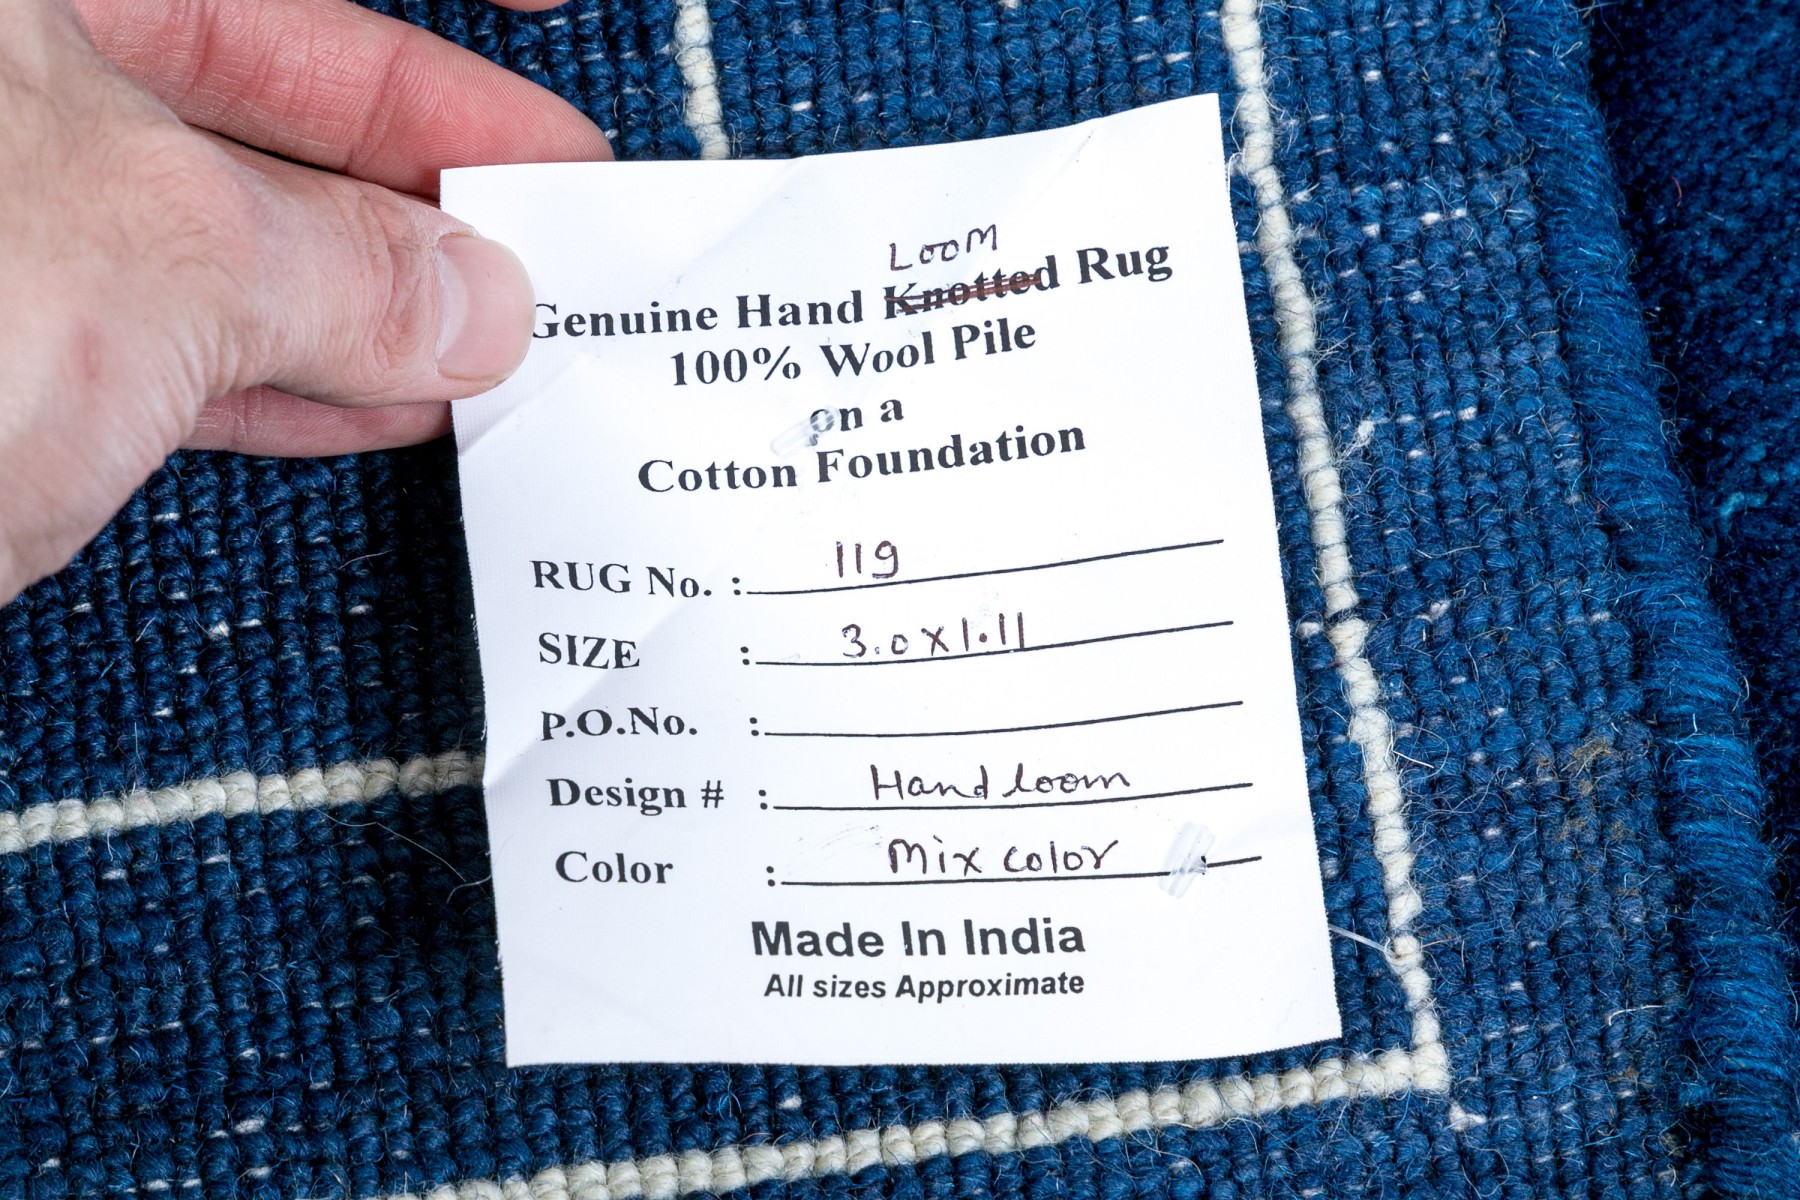 LOOM
Genuine Hand Knotted Rug
100% Wool Pile
on a
Cotton Foundation
RUG No. : 119
SIZE : 3.0x1.11
P.O.No. :
Design # : Hand loom
Color : Mix color
Made In India
All sizes Approximate